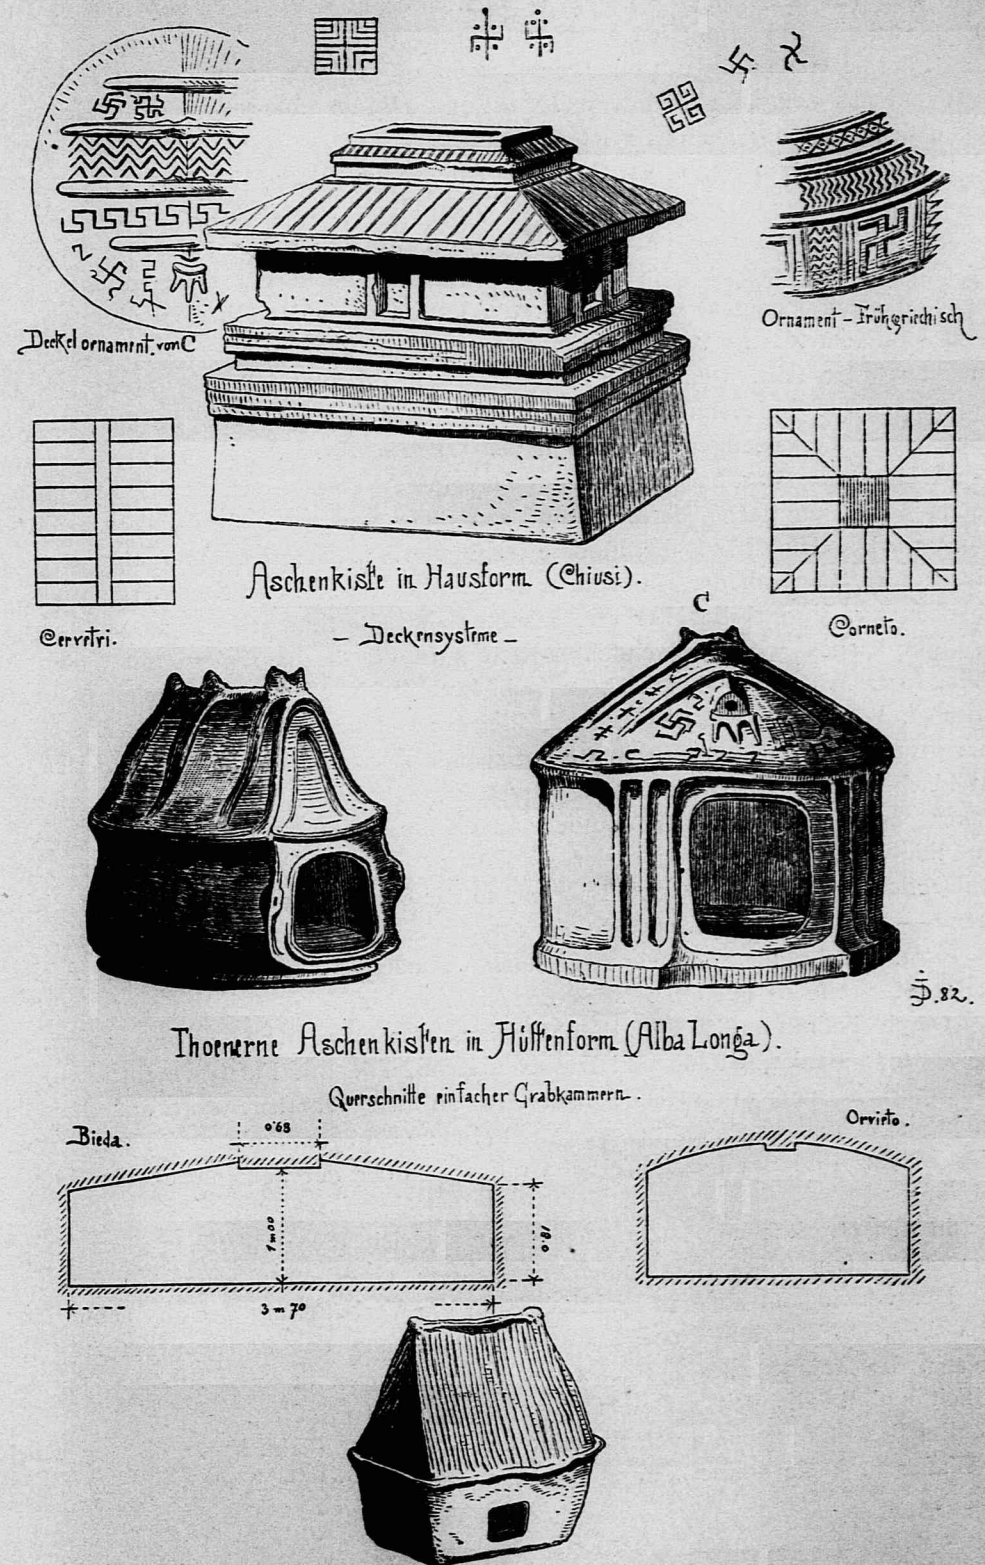 Deckelornament. von C
Ornament – Frühgriechisch
Aschenkiste in Hausform (Chiusi).
Cervetri.
– Deckensysteme –
C
Corneto.
D. 82.
Thoenerne Aschenkisten in Hüttenform (Alba Longa).
Querschnitte einfacher Grabkammern.
Bieda.
Orvieto.
0.68
1 m 00
0.81
3 m 70